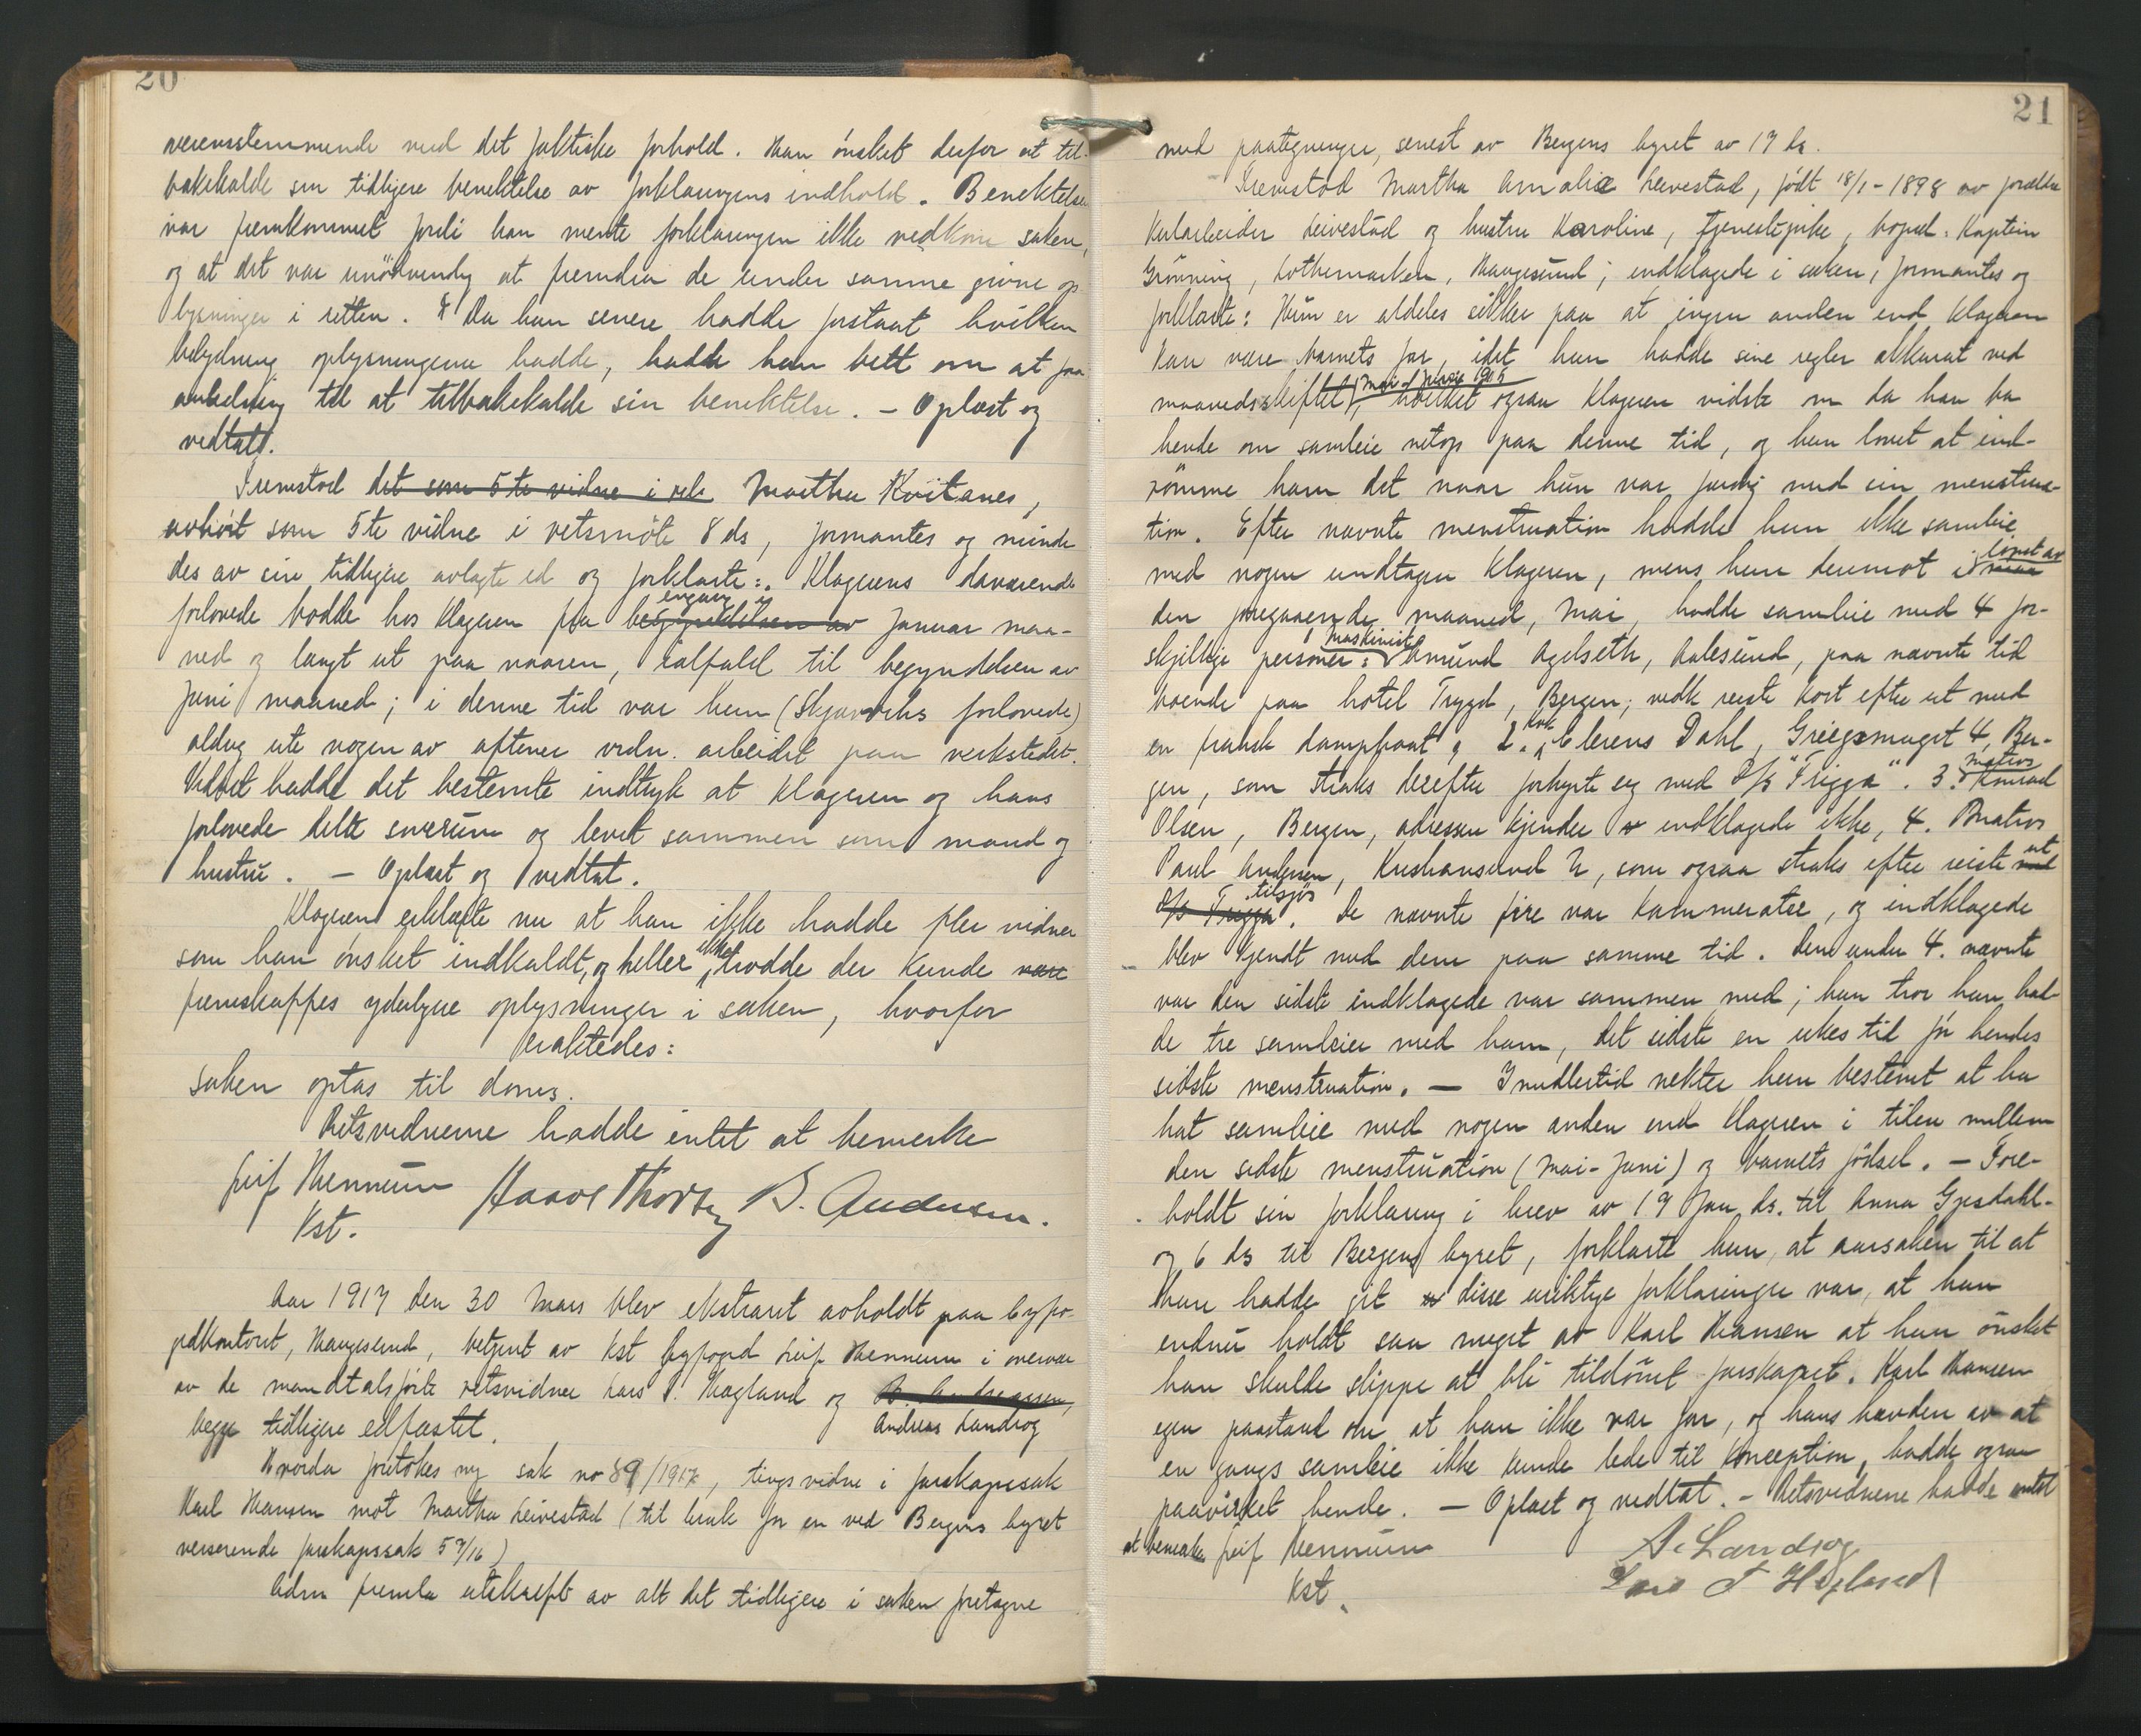 20
overensstemmende med det faktiske forhold. Han ønsket derfor at til-
bakekalde sin tidligere benektelse av forklaringens indhold. Benektelsen
var fremkommet fordi han mente forklaringen ikke vedkom saken,
og at det var unødvendig at fremdra de under samme givne op-
lysninger i retten. Da han senere hadde forstaat hvilken
betydning oplysningerne hadde, hadde han bett om at faa
anledning til at tilbakekalde sin benektelse. – Oplæst og
vedtatt.
Fremstod det som 5te vidne i Martha Kvitanes,
avhørt som 5te vidne i retsmøte 8 ds, formantes og minde-
des av sin tidligere avlagte ed og forklarte: Klagerens daværende
forlovede bodde hos klageren fra begyndelsen av engang i Januar maa-
ned og langt ut paa vaaren, ialfald til begyndelsen av
Juni maaned; i denne tid var hun (Skjærviks forlovede)
aldrig ute nogen av aftener vedn. arbeidet paa verkstedet.
Vidnet hadde det bestemte indtryk at klageren og hans
forlovede delte soverum og levet sammen som mand og
hustru. – Oplæst og vedtat.
Klageren erklærte nu at han ikke hadde fler vidner
som han ønsket indkaldt, og heller ikke trodde der kunde være
fremskaffes yderligere oplysninger i saken, hvorfor
Fraktedes:
Saken optas til doms.
Retsvidnerne hadde intet at bemerke
Leif Mennum Haavs Thorsen B. Andersen.
Kst.
Aar 1917 den 30 Mars blev ekstraret avholdt paa byfo-
gdkontoret, Haugesund, betjent av kst byfoged Leif Mennum i overvær
av de mandtalsførte retsvidner Lars T. Hagland og B. Andreassen,
begge tidligere edfæstet. Andreas Landrog
Hvorda foretokes ny sak no 89/1917, tingsvidne i farskapssak
Karl Hansen mot Martha Leivestad (til bruk for en ved Bergens byret
verserende farskapssak 59/16)
Adm fremla utskrift av alt det tidligere i saken foretagne
21
med paategninger, senest av Bergens byret av 17 ds.
Fremstod Martha Amalie Leivestad, født 18/1-1898 av forældre
Leivestad og hustru Karoline, tjenestepike, boped: Kaptein
Grønning, Lothemarken, Haugesund; indklagede i saken, formantes og
forklarte: Hun er aldeles sikker paa at ingen anden end klageren
kan være barnets far, idet hun hadde sine regler akkurat ved
maanedsskiftet (mai-juni 1915), hvilket ogsaa klageren vidste om da han ba
hende om samleie netop paa denne tid, og hun lovet at ind-
rømme ham det naar hun var færdig med sin menstrua-
tion. Efter nævnte menstruation hadde hun ikke samleie
med nogen undtagen klageren, mens hun derimot i løpet av
den foregaaende maaned, Mai, hadde samleie med 4 for-
skjellige personer: maskinist Amund Agelseth, Aalesund, paa nævnte tid
boende paa hotel Trygd, Bergen; vedk reiste kort efter ut med
en fransk dampbaat, 2. kok Clerens Dahl, Griegsmuget 4, Ber-
gen, som straks derefter forhyrte sig med D/S "Frigga". 3. matros Konrad
Olsen, Bergen, adressen kjender indklagede ikke, 4. Matros
Paul Andersen, Kristiansund N, som ogsaa straks efter reiste ut med
D/S Frigga tilsjøs. De nævnte fire var kammerater, og indklagede
blev kjendt med dem paa samme tid. Den under 4. nævnte
var den sidste indklagede var sammen med; hun tror hun had-
de tre samleier med ham, det sidste en ukes tid før hendes
sidste menstruation. – Imidlertid nekter hun bestemt at ha
hat samleie med nogen anden end klageren i tiden mellem
den sidste menstruation (Mai-Juni) og barnets fødsel. – Fore-
holdt sin forklaring i brev av 19 Jan ds. til Anna Gjesdahl-
og 6 ds til Bergens byret, forklarte hun, at aarsaken til at
hun hadde git disse uriktige forklaringer var, at hun
endnu holdt saa meget av Karl Hansen at hun ønsket
han skulde slippe at bli tildømt farskapet. Karl Hansen
egen paastand om at han ikke var far, og hans hævden av at
en gangs samleie ikke kunde lede til konception, hadde ogsaa
paavirket hende. – Oplæst og vedtat. – Retsvidnene hadde intet
at bemerke Leif Mennum
Kst.
A. Landrog
Lars T Hagland